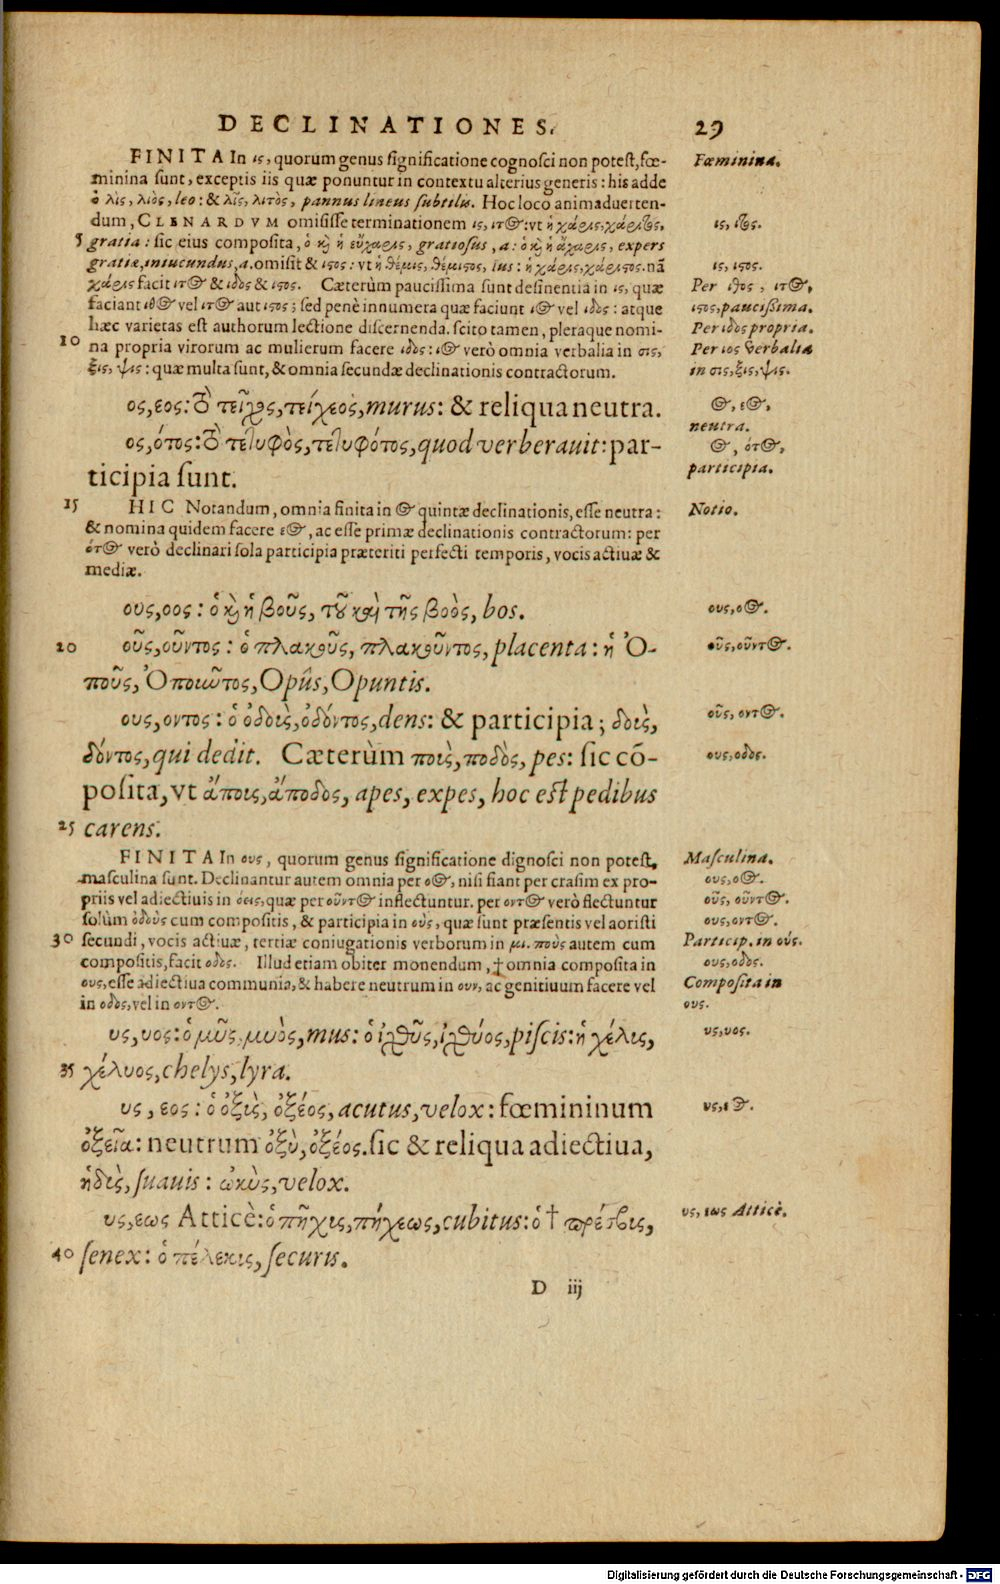 DECLINATIONES. 29
FINITA In ις, quorum genus significatione cognosci non potest, fœ-
minina sunt, exceptis iis quæ ponuntur in contextu alterius generis: his adde
ὁ λὶς, λιὸς, leo: & λῒς, λιτὸς, pannus lineus subtilis. Hoc loco animaduerten-
dum, CLENARDVM omisisse terminationem ις, ιτος: vt ἡ χάρις, χάριτος,
5 gratia: sic eius composita, ὁ καὶ ἡ εὔχαρις, gratiosus, a: ὁ καὶ ἡ ἄχαρις, expers
gratiæ, iniucundus, a. omisit & ιστος: vt ἡ θέμις, θέμιστος, ius: ἡ χάρις, χάριστος. nã
χάρις facit ιτος & ιδος & ιστος. Cæterùm paucissima sunt desinentia in ις, quæ
faciant ιθος vel ιτος aut ιστος; sed penè innumera quæ faciunt ιος vel ιδος: atque
hæc varietas est authorum lectione discernenda. scito tamen, pleraque nomi-
10 na propria virorum ac mulierum facere ιδος: ιος verò omnia verbalia in σις,
ξις, ψις: quæ multa sunt, & omnia secundæ declinationis contractorum.
ος, εος: τὸ τεῖχος, τείχεος, murus: & reliqua neutra.
ος, ότος: τὸ τετυφὸς, τετυφότος, quod verberauit: par-
ticipia sunt.
15 HIC Notandum, omnia finita in ος quintæ declinationis, esse neutra:
& nomina quidem facere εος, ac esse primæ declinationis contractorum: per
ότος verò declinari sola participia præteriti perfecti temporis, vocis actiuæ &
mediæ.
ους, οος: ὁ καὶ ἡ βοῦς, τοῦ καὶ τῆς βοὸς, bos.
20 οῦς, οῦντος: ὁ πλακοῦς, πλακοῦντος, placenta: ἡ Ὀ-
ποῦς, Ὀποιῶτος, Opûs, Opuntis.
ους, οντος: ὁ ὀδοὺς, ὀδόντος, dens: & participia; δοὺς,
δόντος, qui dedit. Cæterùm ποὺς, ποδὸς, pes: sic cõ-
posita, vt ἄπους, ἄποδος, apes, expes, hoc est pedibus
25 carens.
FINITA In ους, quorum genus significatione dignosci non potest,
masculina sunt. Declinantur autem omnia per οος, nisi fiant per crasim ex pro-
priis vel adiectiuis in όεις, quæ per οῦντος inflectuntur. per οντος verò flectuntur
solùm ὀδοὺς cum compositis, & participia in οὺς, quæ sunt præsentis vel aoristi
30 secundi, vocis actiuæ, tertiæ coniugationis verborum in μι. ποὺς autem cum
compositis, facit οδος. Illud etiam obiter monendum, † omnia composita in
ους, esse adiectiua communia, & habere neutrum in ουν, ac genitiuum facere vel
in οδος, vel in οντος.
υς, υος: ὁ μῦς, μυὸς, mus: ὁ ἰχθῦς, ἰχθύος, piscis: ἡ χέλυς,
35 χέλυος, chelys, lyra.
υς, εος: ὁ ὀξὺς, ὀξέος, acutus, velox: fœmininum
ὀξεῖα: neutrum ὀξὺ, ὀξέος. sic & reliqua adiectiua,
ἡδὺς, suauis: ὠκὺς, velox.
υς, εως Atticè: ὁ πῆχυς, πήχεως, cubitus: ὁ † πρέσβυς,
40 senex: ὁ πέλεκυς, securis.
D iij
Fœminina.
ις, ιτος.
ις, ιστος.
Per ιθος, ιτος,
ιστος, paucissima.
Per ιδος propria.
Per ιος verbalia
in σις, ξις, ψις.
ος, εος,
neutra.
ος, ότος,
participia.
Notio.
ους, οος.
οῦς, οῦντος.
οῦς, οντος.
ους, οδος.
Masculina.
ους, οος.
οῦς, οῦντος.
ους, οντος.
Particip. in οὺς.
ους, οδος.
Composita in
ους.
υς, υος.
υς, εος.
υς, εως Atticè.
Digitalisierung gefördert durch die Deutsche Forschungsgemeinschaft - DFG